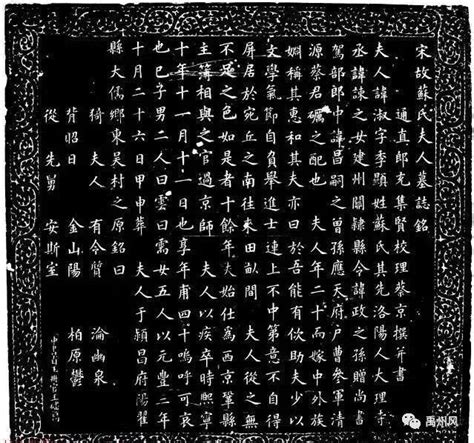 宋故蘇氏夫人墓誌銘
通直郎充集賢校理蔡京撰并書
夫人諱淑字李顯姓蘇氏其先洛陽人大理寺
丞諱諫之女建州關隸縣令諱政之孫贈尚書
駕部郎中諱昌嗣之曾孫應天府戶曹參軍清
源蔡君礪之配也 夫人年二十而嫁中外族
姻稱其惠和其夫亦曰於吾能有佽助夫少以
文學氣節自負舉進士連上不中第意不自得
屏居於宛丘之南往來田畝間 夫人從之無
不足之色如是者十餘年夫始仕為西京鞏縣
主簿相與之官過京師 夫人以疾卒時熙寧
十年十一月十二日也享年甫四十嗚呼可哀
也已子男二人曰雲曰需女五人以元豐二年
十月二十六日甲申葬 夫人于潁昌府陽翟
縣大儒鄉東吳村之原銘曰
猗 夫人 有令質 淪幽泉
背昭日 金山陽 柏原鬱
從先舅 安斯室
禹州风